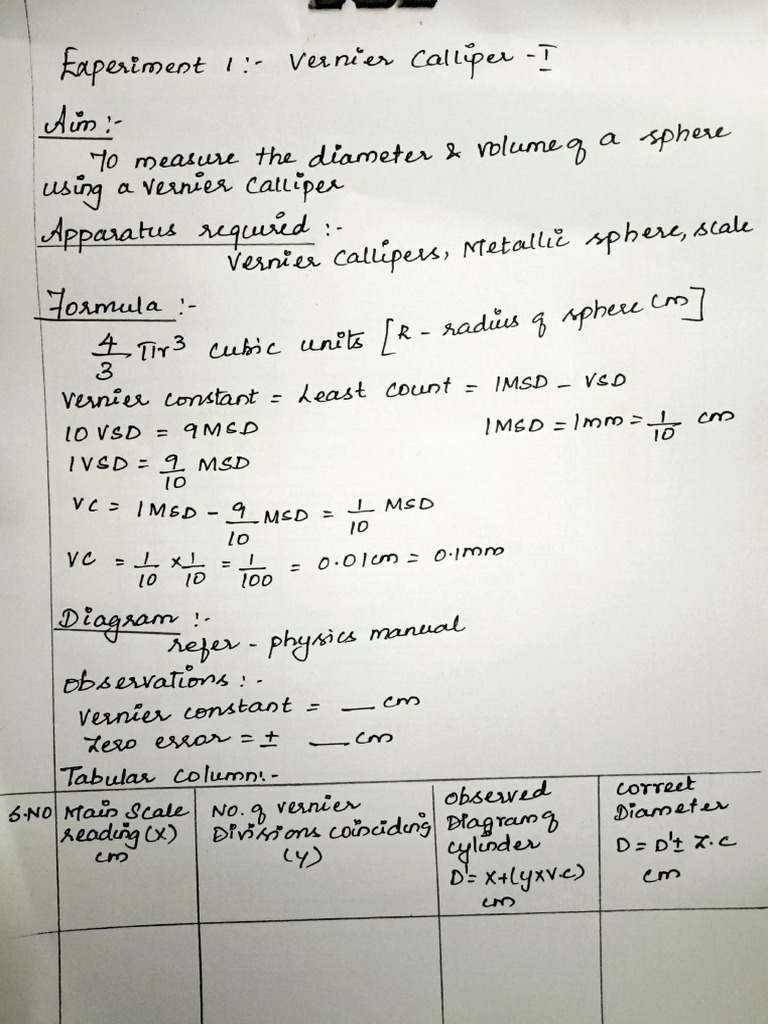 Experiment 1:- Vernier Calliper - I
Aim:-
To measure the diameter & volume of a sphere
using a vernier calliper
Apparatus required :-
Vernier Callipers, Metallic sphere, scale
Formula :-
4/3 πr³ cubic units [R - radius of sphere cm]
Vernier constant = Least count = 1MSD - VSD
10 VSD = 9 MSD 1MSD = 1mm = 1/10 cm
1VSD = 9/10 MSD
VC = 1MSD - 9/10 MSD = 1/10 MSD
VC = 1/10 x 1/10 = 1/100 = 0.01cm = 0.1mm
Diagram :-
refer - physics manual
Observations :-
Vernier constant = __ cm
Zero error = ± __ cm
Tabular column:-
S.NO
Main Scale
reading (x)
cm
No. of vernier
Divisions coinciding
(y)
Observed
Diagram of
cylinder
D' = x+(yxv.c)
cm
Correct
Diameter
D = D' ± z.c
cm